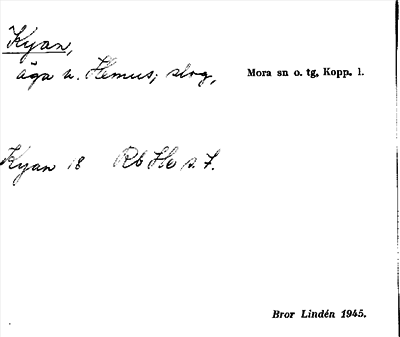 Kyan,
äga u. Hemus; skog, Mora sn o. tg, Kopp. l.
Kyan 18 Rb He s. 7.
Bror Lindén 1945.